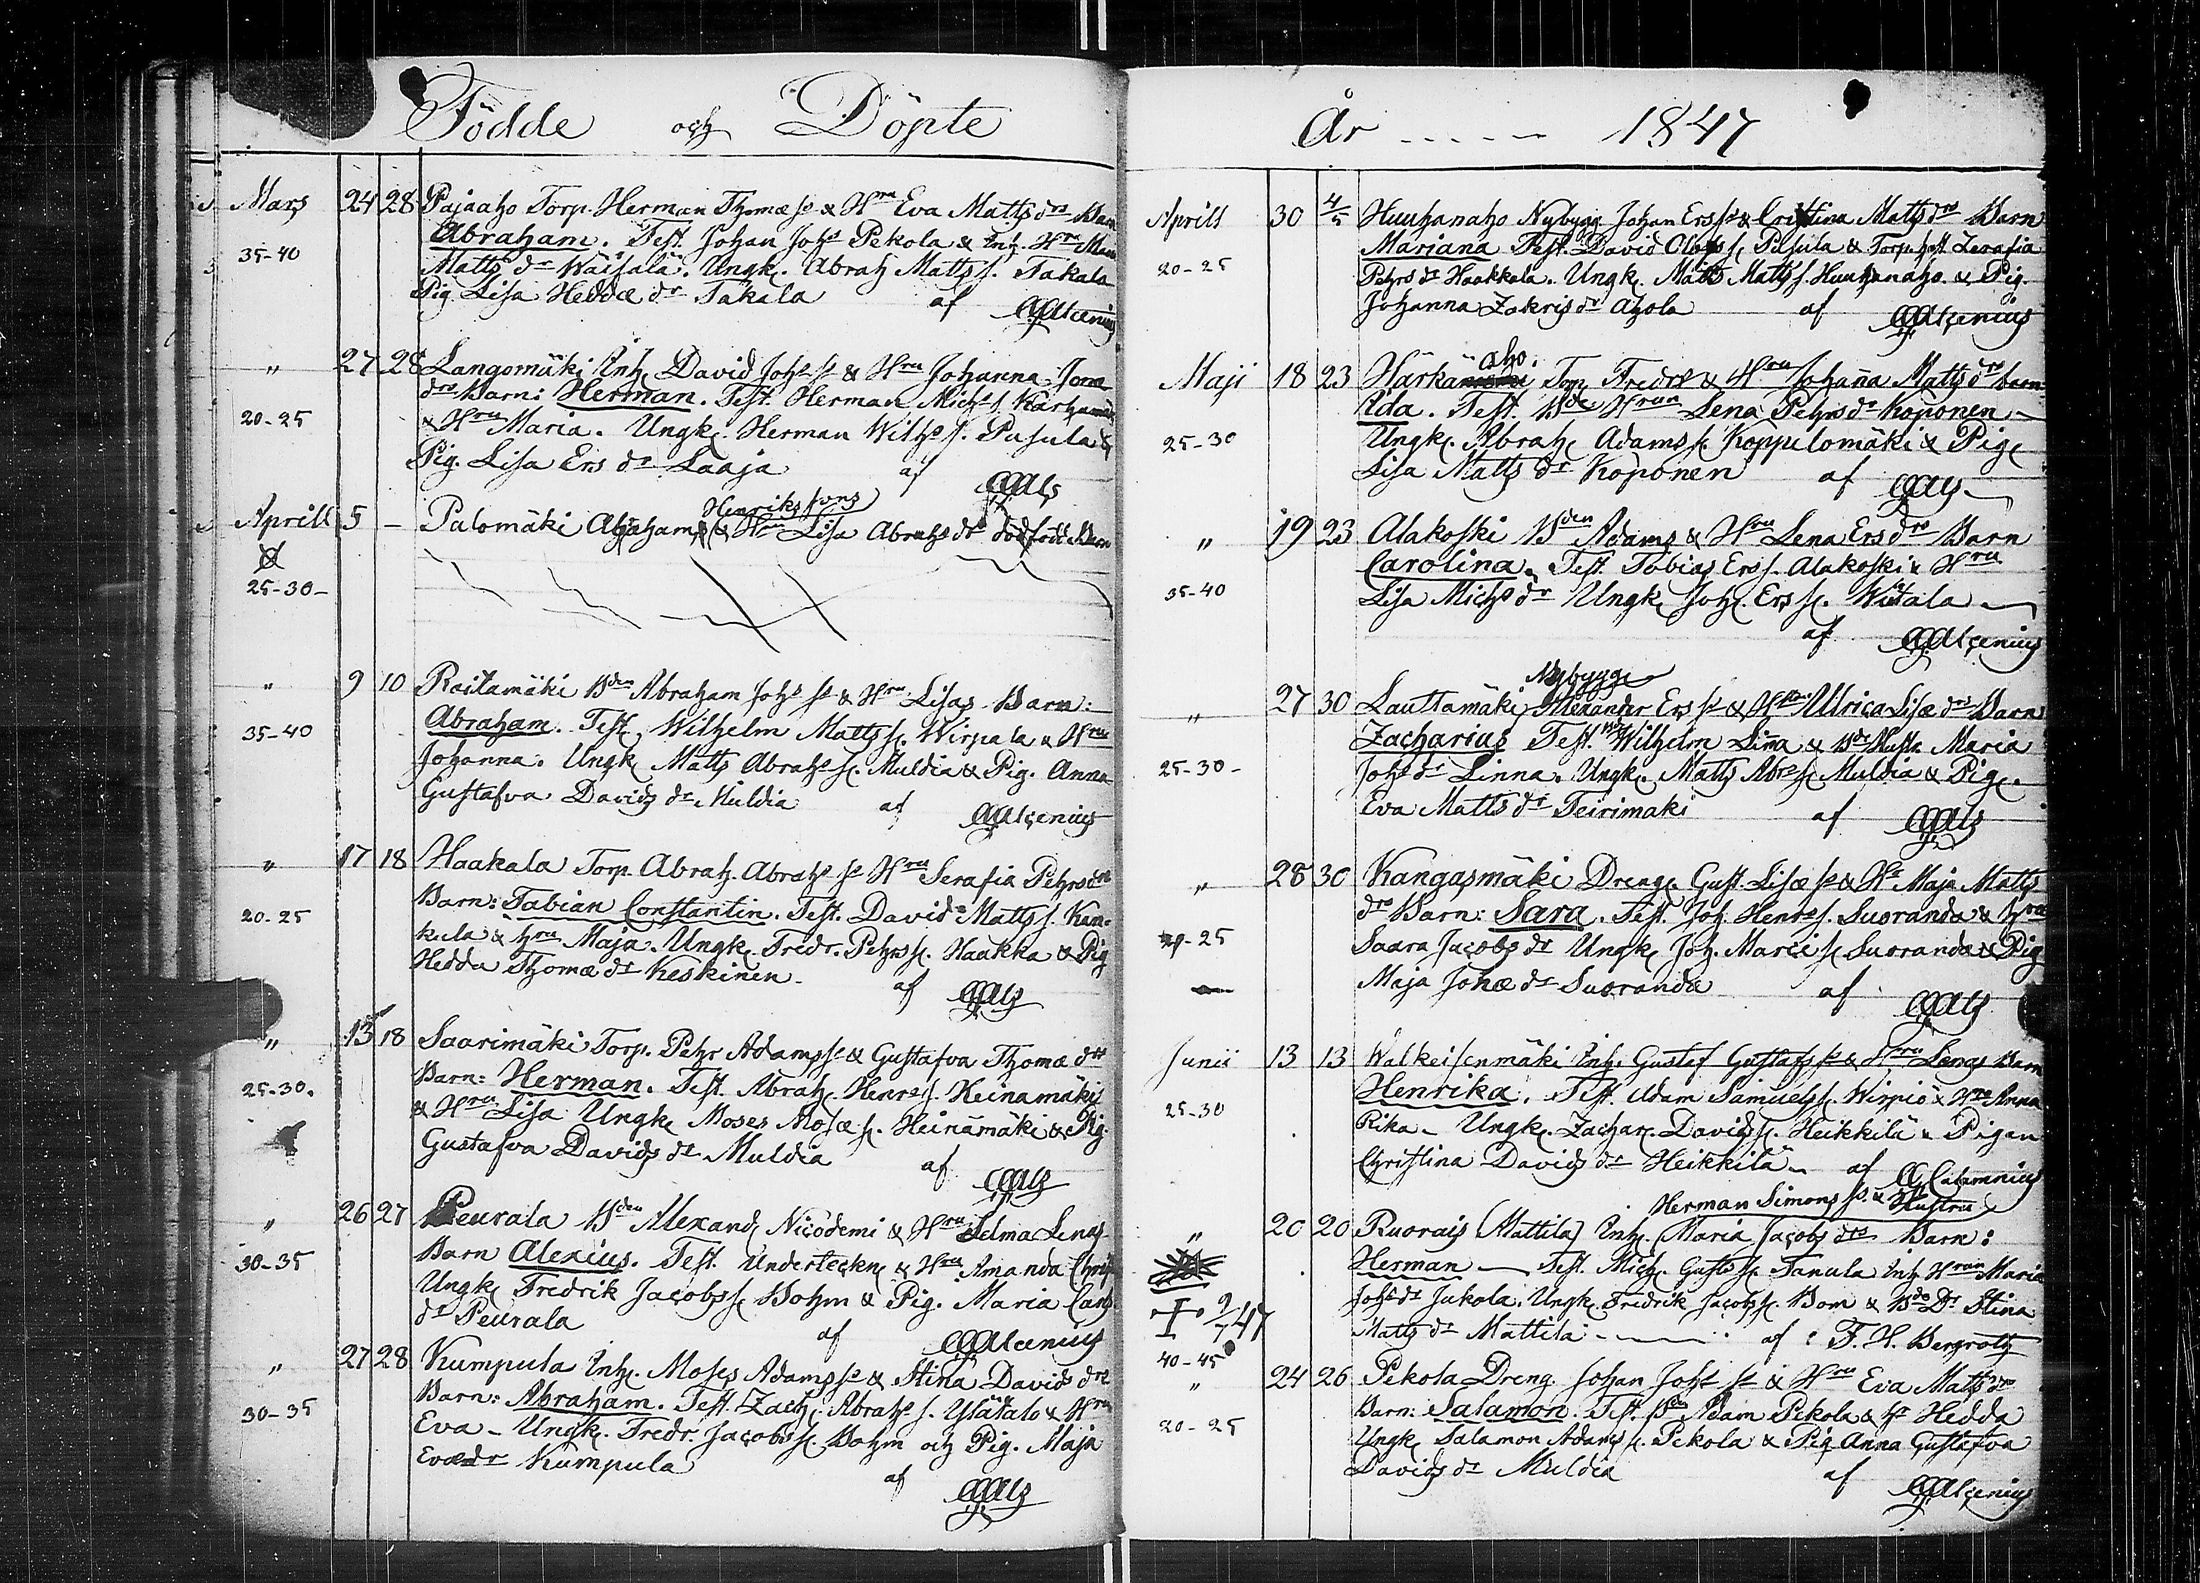 Födde och Döpte
Mars 24 28 Pajaaho Torp. Herman Thomæ s. & Hru Eva Matts drs Barn
35-40 Abraham. Test. Johan Johs Pekola & Inh. Hru
Matts dr Wäisälä. Ungk. Abrah Matts s. Takala
Pig. Lisa Heddæ dr Takala af AAlcenius
" 27 28 Langomäki Inh. David Johs s. & Hru Johanna Jonæ
drs Barn: Herman. Test. Herman Michs s.
20-25 & Hru Maria. Ungk. Herman Wilhs s. Pusula &
Pig. Lisa Ers dr Laaja af AAls
Henrikssons
Aprill 5 - Palomäki Abraham & Hru Lisa Abrahs dr dödfödt Barn
25-30-
" 9 10 Raitamäki Bden Abraham Johs s. & Hru Lisas Barn:
35-40 Abraham. Test. Wilhelm Matts s. Wirpala & Hru
Johanna. Ungk. Matts Abrahs s. Muldia & Pig. Anna
Gustafva Davids dr Muldia af AAlcenius
" 17 18 Haakala Torp. Abrah. Abrahs s. Hru Serafia Pehrs drs
20-25 Barn: Fabian Constantin. Test. David Matts s. Kan-
kula & Hru Maja. Ungk. Fredr. Pehrs s. Haakka & Pig
Hedda Thomæ dr Keskinen. af AAls
" 13 18 Saarimäki Torp. Pehr Adams s. & Gustafva Thomæ drs
25-30. Barn: Herman. Test. Abrah. Henrs s. Heinamäki
& Hru Lisa Ungk. Moses Mosæ s. Heinämäki & Pig.
Gustafva Davids dr Muldia af AAls
" 26 27 Peurala Bden Alexand. Nicodemi & Hru Selma Lenas
30-35 Barn Alexius. Test. Underteckn. & Hru Amanda
Ungk. Fredrik Jacobs s. Bohm & Pig. Maria Carls
dr Peurala af AAlcenius
" 27 28 Kumpula Inh. Moses Adams s. & Stina Davids drs
30-35 Barn: Abraham. Test. Zach. Abrahs s. Ylätalo & Hru
Eva - Ungk. Fredr. Jacobs s. Bohm och Pig. Maja
Evæ dr Kumpula af AAls
År ----- 1847
Aprill 30 4/5 Huuhanaho Nybygg. Johan Ers s. & Cristina Matts drs Barn
20-25 Mariana Test. David Olofs s. Pusula & Torp. hst. Zerafia
Pehrs dr Haakkala. Ungk. Matts Matts s. Huuhanaho. & Pig.
Johanna Zakris dr Ahola af AAlcenius
aho.
Maji 18 23 Härkä Torp. Fredrs & Hru Johanna Matts drs barn
Ida. Test. Bde Hrun Lena Pehrs dr Koponen
25-30 Ungk. Abrah. Adams s. Koppulomäki & Pig.
Lisa Matts dr Koponen af AAls
" 19 23 Alakoski Bden Adams & Hru Lena Ers drs Barn
Carolina. Test. Tobias Ers s. Alakoski & Hru
35-40 Lisa Michs dr Ungk. Joh. Ers s. Witala
af AAlcenius
Nybygge
" 27 30 Lauttamäki Alexander Ers s. & Hru Ulrica Lisæ drs Barn
Zacharius Test. Wilhelm Lina & Maria
25-30- Johs dr Linna. Ungk. Matts Abrs s. Muldia & Pig.
Eva Matts dr Teirimaki af AAls
" 28 30 Kangasmäki Dreng. Gust. Lisæ s. & Hr Maja Matts
drs Barn: Sara. Test. Joh. Henrs s. Suoranda & Hru
20-25 Saara Jacobs dr Ungk. Joh. Marci s. Suoranda & Pig
Maja Johæ dr Suoranda af AAls
Junii 13 13 Walkeisenmäki Inh. Gustaf Gustafs s. & Hru Lenas Barn
25-30 Henrika. Test. Adam Samuels s. Wirpiö & Hru Anna
Rika - Ungk. Zachar. Davids s. Heikkilä & Pigan
Christina Davids dr Heikkilä af A Calamnius
Herman Simons s. & Hustru
" 20 20 Ruorais (Mattila) Inh. Maria Jacobs drs Barn:
Herman - Test. Mich. Gusts s. Tanula Inh. Hrun Maria
† 9/7 47 Johs dr Jukola. Ungk. Fredrik Jacobs s. Bom & Bde Dr Stina
Matts dr Mattila - af: F. H. Bergroth
40-45
" 24 26 Pekola Dreng. Johan Johs s. & Hru Eva Matts drs
20-25 Barn: Salamon. Test. Bden Adam Pekola & Hr Hedda
Ungk. Salamon Adams s. Pekola & Pig Anna Gustafva
Davids dr Muldia af AAlcenius